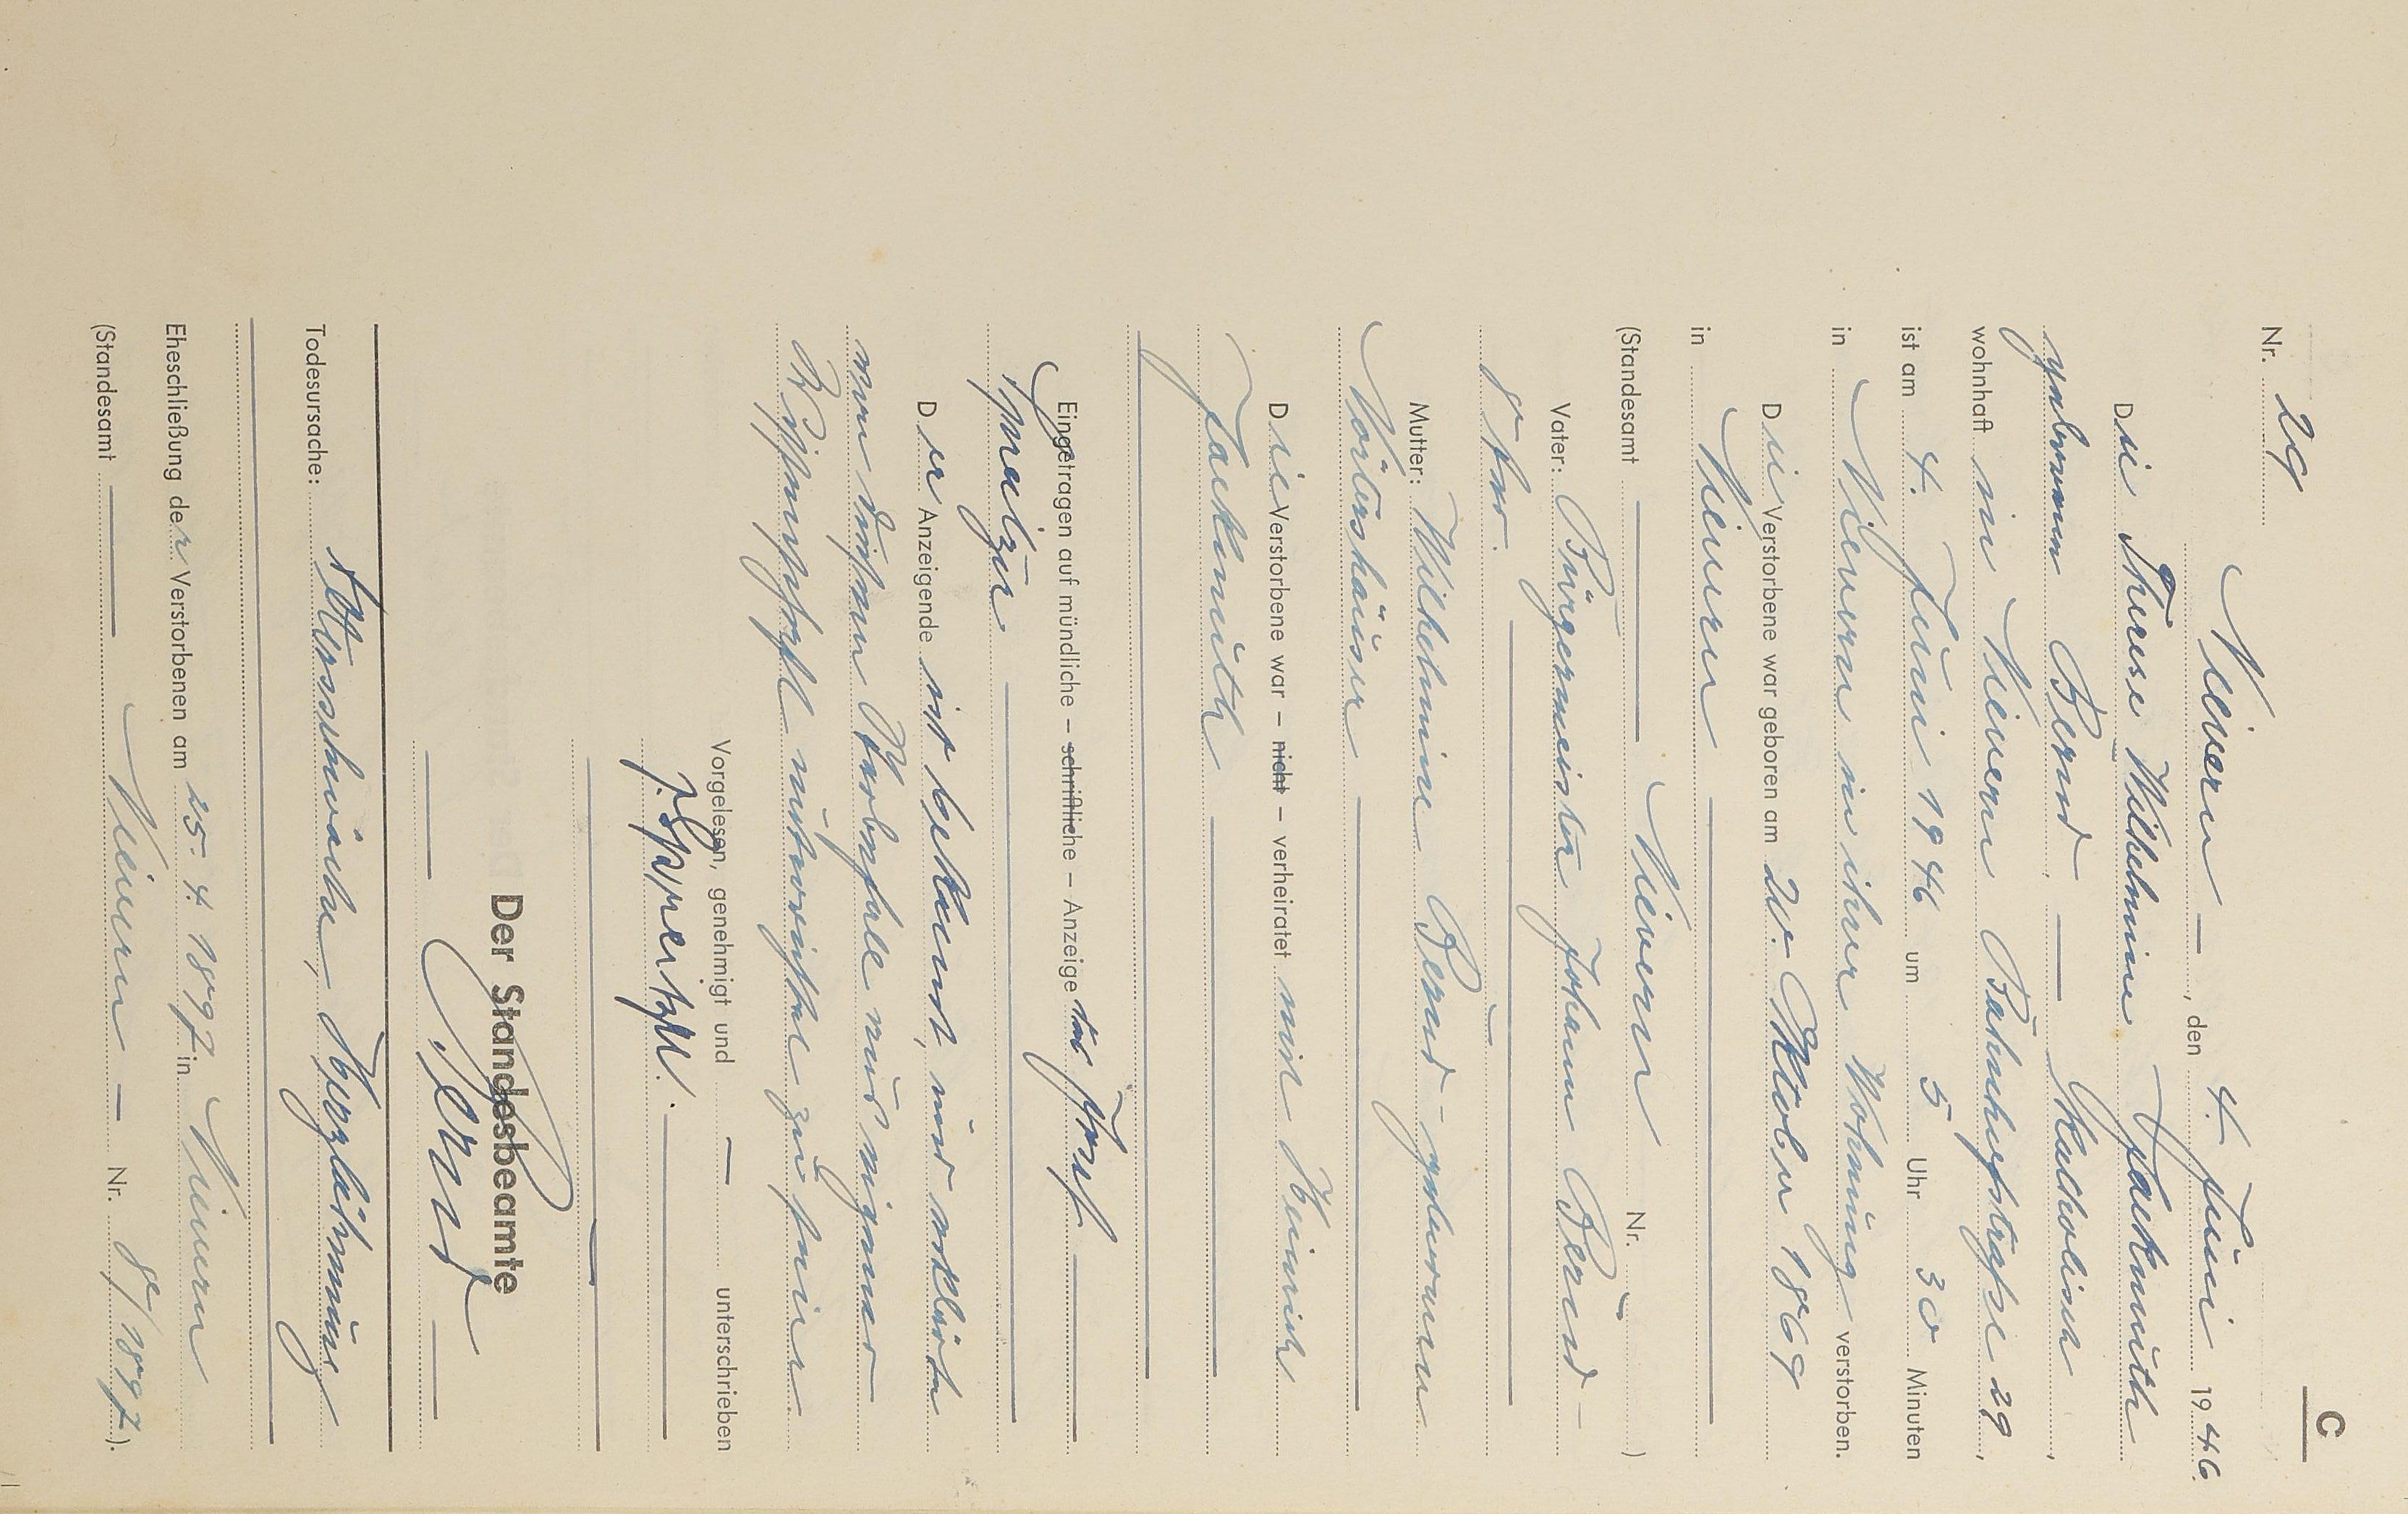 C
Nr. 29
Nievern —, den 4. Juni 1946.
Die Therese Wilhelmine Jackmuth
geborenen Bernd — katholisch,
wohnhaft in Nievern Bahnhofstraße 29,
ist am 4. Juni 1946 um 5 Uhr 30 Minuten
in Nievern in ihrer Wohnung verstorben.
Die Verstorbene war geboren am 20. Oktober 1869
in Nievern
(Standesamt — Nievern Nr. — )
Vater: Bürgermeister Johann Bernd –
Mutter: Wilhelmine Bernd - geborenen
Die Verstorbene war – nicht – verheiratet mit Heinrich
Jackmuth
Eingetragen auf mündliche – schriftliche – Anzeige des Josef
Der Anzeigende ist bekannt, und erklärte
von diesem Sterbefalle aus eigener
Wissenschaft unterrichtet zu sein.
Vorgelesen, genehmigt und — unterschrieben
Der Standesbeamte
Todesursache: Altersschwäche, Herzlähmung
Eheschließung der Verstorbenen am 25. 4. 1897 in Nievern
(Standesamt — Nievern — Nr. 8/1897).